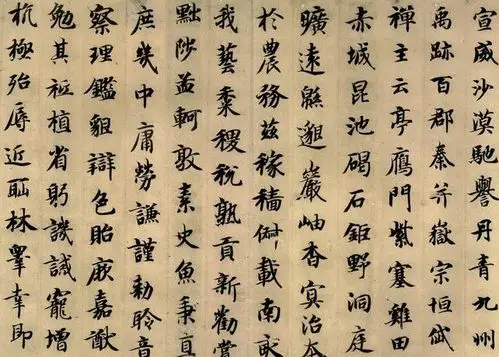 宣威沙漠馳譽丹青九州
禹跡百郡秦并嶽宗恒岱
禪主云亭鴈門紫塞雞田
赤城昆池碣石鉅野洞庭
曠遠緜邈巖岫杳冥治本
於農務茲稼穡俶載南畝
我藝黍稷稅熟貢新勸賞
黜陟孟軻敦素史魚秉直
庶幾中庸勞謙謹勑聆音
察理鑑貌辯色貽厥嘉猷
勉其祗植省躬譏誡寵增
抗極殆辱近耻林睪幸即